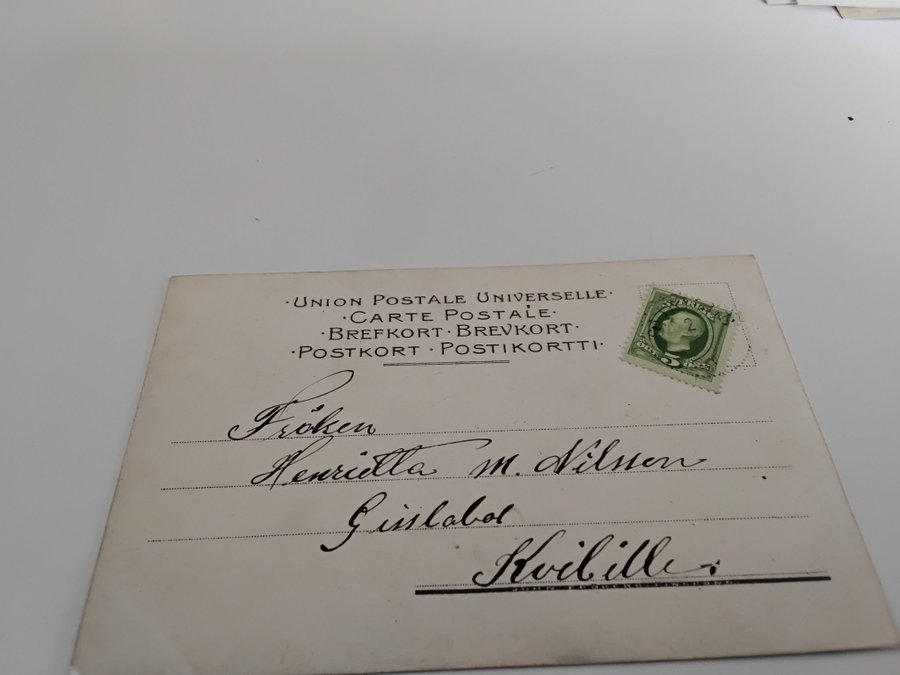 ·UNION POSTALE UNIVERSELLE·
·CARTE POSTALE·
·BREFKORT·BREVKORT·
·POSTKORT·POSTIKORTTI·
5
Fröken
Henrietta M. Nilsson
Gisslabol
Kvibille.